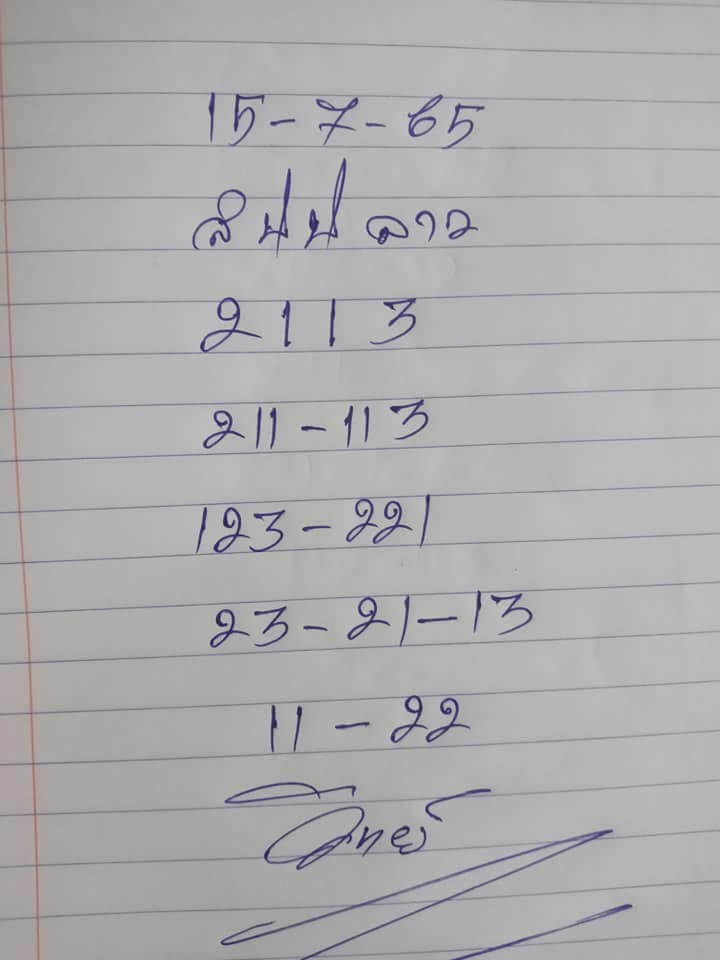 15-7-65
สปปลาว
2113
211-113
123-221
23-21-13
11-22